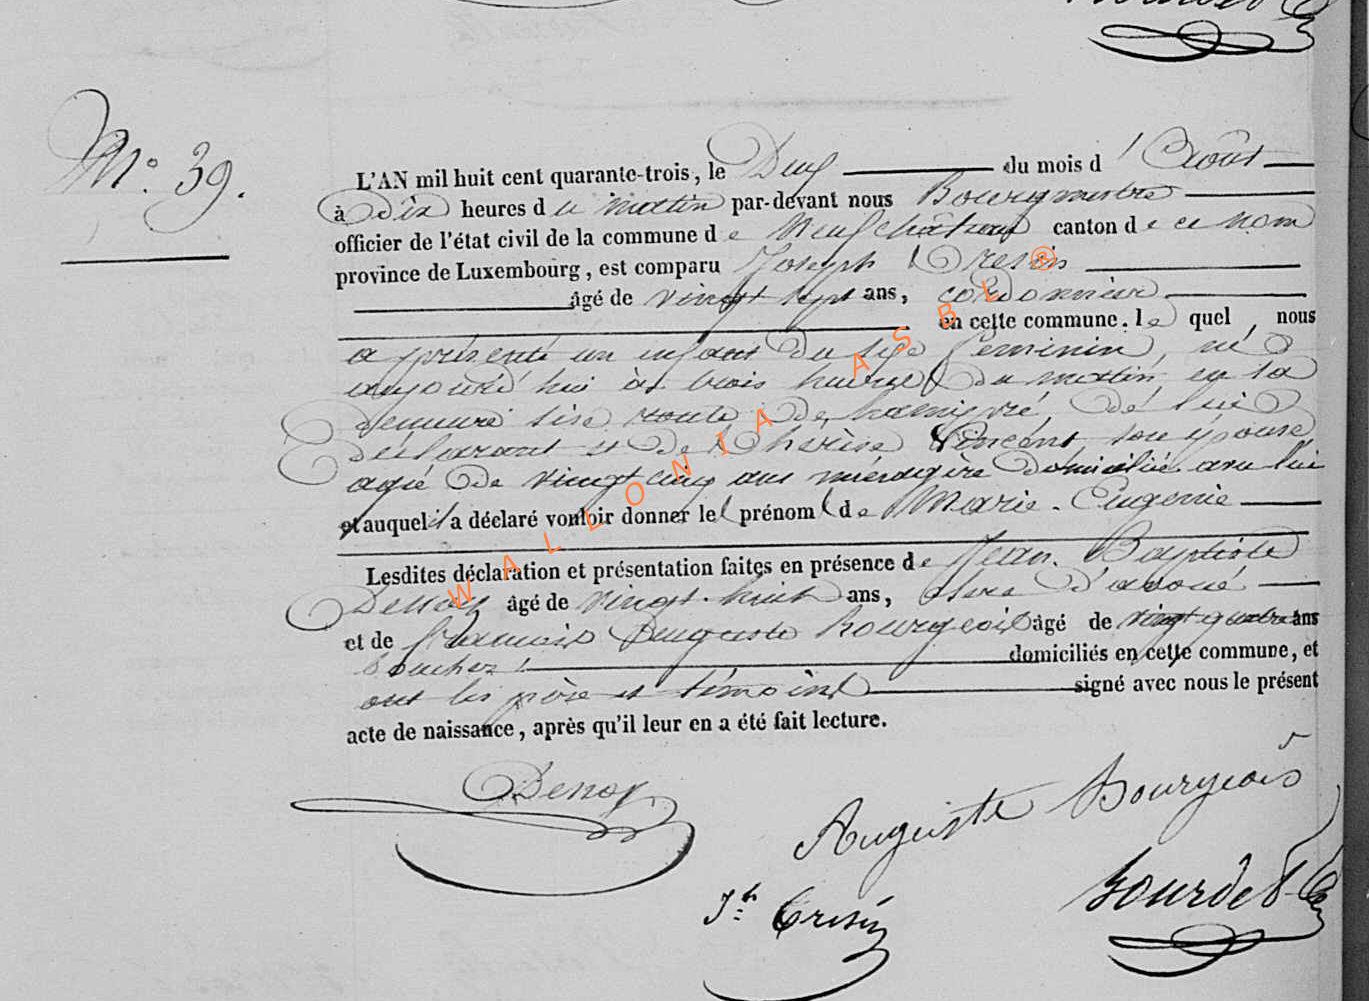 N.° 39.
L'AN mil huit cent quarante-trois, le Deux du mois d'Août
à Dix heures du matin par-devant nous Bourgmestre
officier de l'état civil de la commune de Neufchâteau canton de ce nom
province de Luxembourg, est comparu Joseph
âgé de vingt sept ans, cordonnier
en cette commune. lequel, nous
a présenté un enfant du sexe feminin, né
aujourd'hui à trois heures du matin, en sa
demeure sise route de hamipré, de lui
déclarant et de Thérèse Vincent son épouse
agée de vingt cinq ans ménagère domiciliée avec lui
et auquel il a déclaré vouloir donner le prénom de Marie-Eugenie
Lesdites déclaration et présentation faites en présence de Jean-Baptiste
Denoy âgé de vingt-huit ans, clerc d'avoué
et de François Auguste Bourgeois âgé de vingt quatre ans
boucher domiciliés en cette commune, et
ont les père et témoins signé avec nous le présent
acte de naissance, après qu'il leur en a été fait lecture.
Denoy
Auguste Bourgeois
Jh
WALLONIA ASBL®